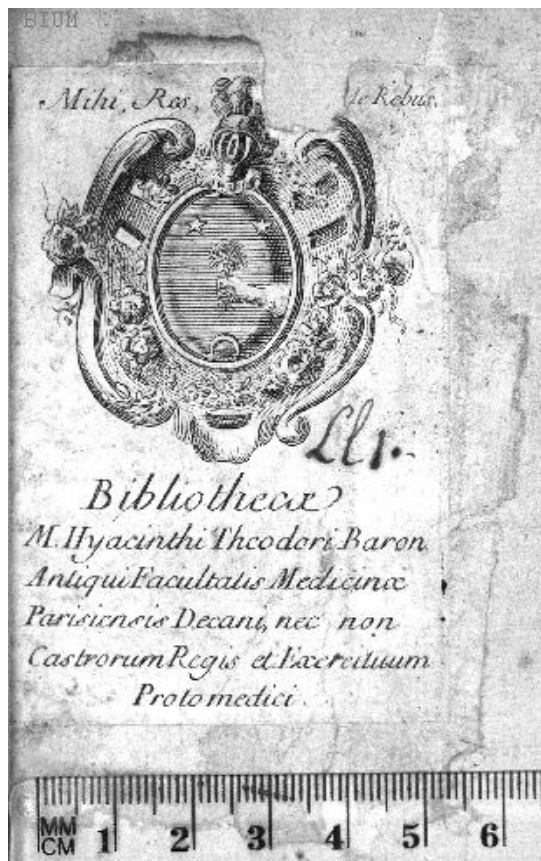 BIUM
Mihi, Res, te Rebus.
Ll1.
Bibliothecæ
M. Hyacinthi Theodori Baron
Antiqui Facultatis Medicinæ
Parisiensis Decani, nec non
Castrorum Regis et Exercituum
Protomedici.
MM
CM 1 2 3 4 5 6